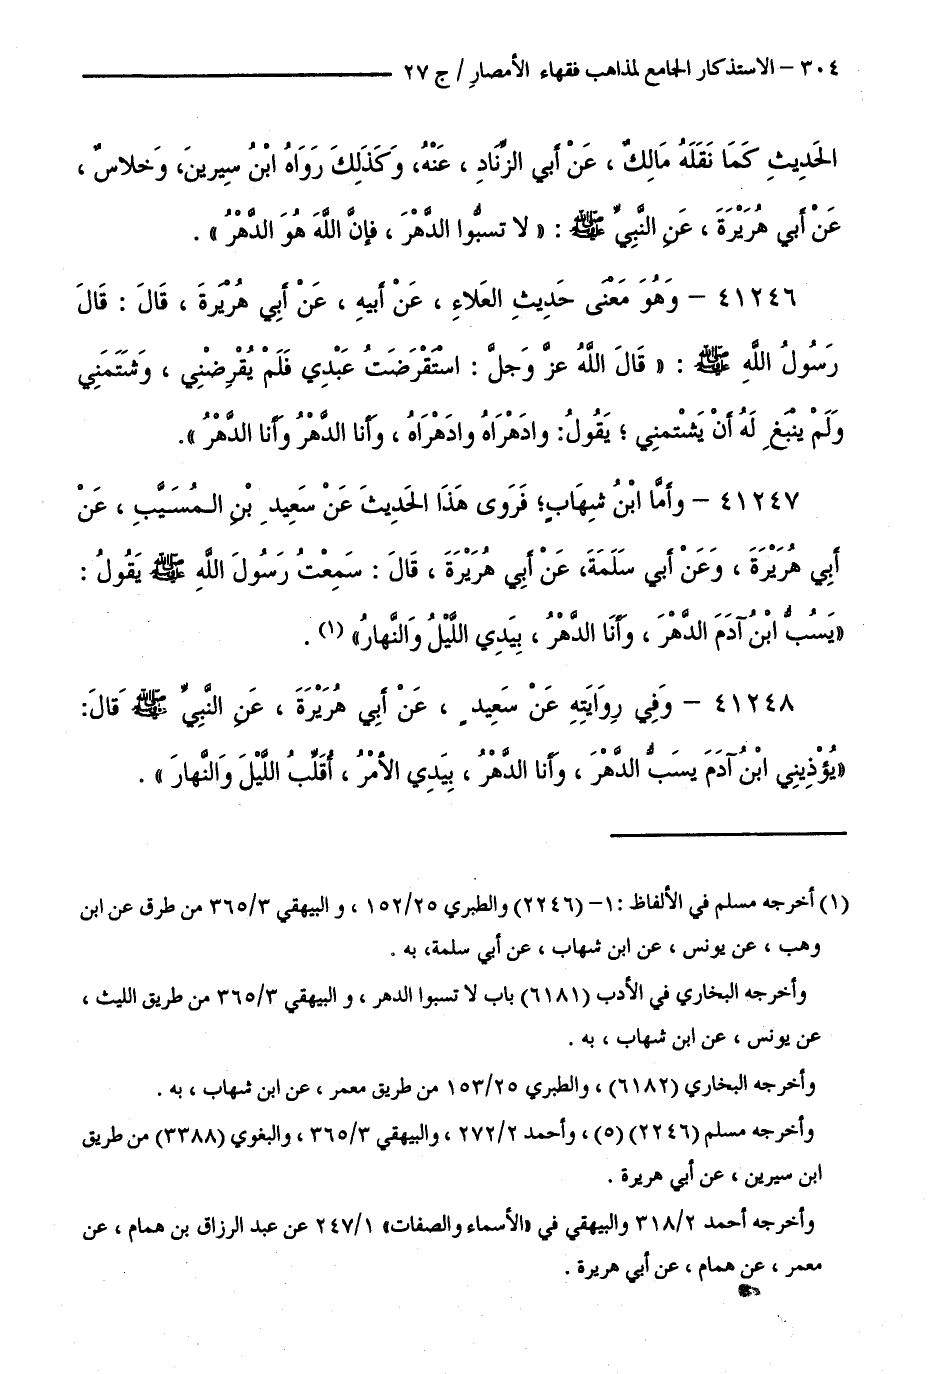 ٣٠٤ – الاستذكار الجامع لمذاهب فقهاء الأمصارِ / ج ٢٧
الحَديثِ كَمَا نَقَلَهُ مَالِكٌ ، عَنْ أَبي الزِّنَادِ ، عَنْهُ، وَكَذَلِكَ رَوَاهُ ابْنُ سِيرينَ، وَخلاسٌ ،
عَنْ أَبي هُرَيْرَةَ ، عَنِ النَّبِيِّ ﷺ : « لا تسبُّوا الدَّهْرَ ، فإنَّ اللَّهَ هُوَ الدَّهْرُ » .
٤١٢٤٦ – وَهُوَ مَعْنَى حَدِيثِ العَلاءِ ، عَنْ أَبيهِ ، عَنْ أَبي هُرَيْرةَ ، قَالَ : قَالَ
رَسُولُ اللَّهِ ﷺ : « قَالَ اللَّهُ عزَّ وَجلَّ : استَقْرَضَتُ عَبْدِي فَلَمْ يُقْرِضْنِي ، وَشَتَمَنِي
وَلَمْ ينْبَغِ لَهُ أَنْ يَشْتمنِي ؛ يَقُولُ: وادَهْرَاهُ وادَهْرَاهُ ، وَأَنا الدَّهْرُ وَأَنا الدَّهْرُ ».
٤١٢٤٧ – وأَمَّا ابْنُ شِهَابٍ؛ فَرَوى هَذَا الحَديثَ عَنْ سَعِيدِ بْنِ الـمُسَيَّبِ ، عَنْ
أَبِي هُرَيْرَةَ ، وَعَنْ أَبي سَلَمَةَ، عَنْ أَبِي هُرَيْرَةَ ، قَالَ : سَمِعْتُ رَسُولَ اللَّهِ ﷺ يَقُولُ :
«يَسَبُّ ابْنُ آدَمَ الدَّهْرَ ، وأَنَا الدَّهْرُ ، بِيَدِي اللَّيْلُ وَالنَّهارُ» (١) .
٤١٢٤٨ – وَفِي رِوَايَتِهِ عَنْ سَعِيدٍ ، عَنْ أَبِي هُرَيْرَةَ ، عَنِ النَّبِيِّ ﷺ قَالَ:
«يُؤْذِينِي ابْنُ آدَمَ يسَبُّ الدَّهْرَ ، وَأَنا الدَّهْرُ ، بِيَدِي الأَمْرُ ، أُقَلِّبُ اللَّيْلَ وَالنَّهارَ » .
(١) أخرجه مسلم في الألفاظ :١– (٢٢٤٦) والطبري ١٥٢/٢٥ ، و البيهقي ٣٦٥/٣ من طرق عن ابن
وهب ، عن يونس ، عن ابن شهاب ، عن أبي سلمة، به .
وأخرجه البخاري في الأدب (٦١٨١) باب لا تسبوا الدهر ، و البيهقي ٣٦٥/٣ من طريق الليث ،
عن يونس ، عن ابن شهاب ، به .
وأخرجه البخاري (٦١٨٢) ، والطبري ١٥٣/٢٥ من طريق معمر ، عن ابن شهاب ، به .
وأخرجه مسلم (٢٢٤٦) (٥) ، وأحمد ٢٧٢/٢ ، والبيهقي ٣٦٥/٣ ، والبغوي (٣٣٨٨) من طريق
ابن سيرين ، عن أبي هريرة .
وأخرجه أحمد ٣١٨/٢ والبيهقي في «الأسماء والصفات» ٢٤٧/١ عن عبد الرزاق بن همام ، عن
معمر ، عن همام ، عن أبي هريرة .